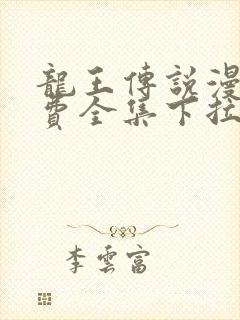 龍王傳說漫
費全集下拉
李雲富